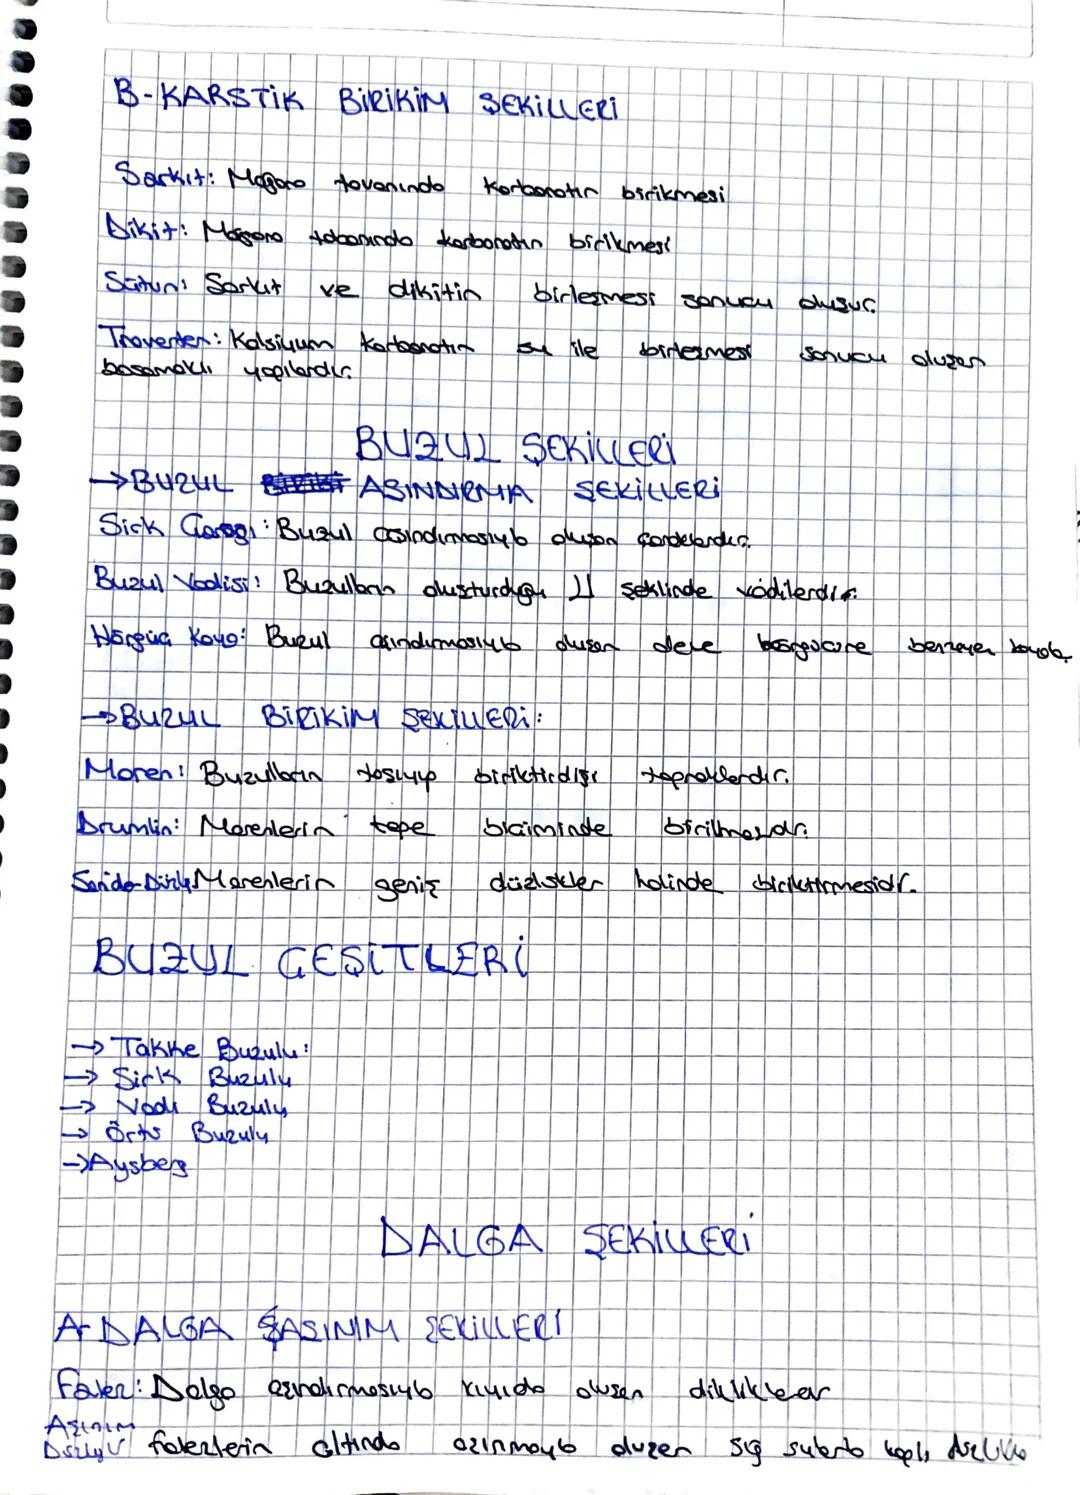 B-KARSTİK BİRİKİM ŞEKİLLERİ
Sarkıt: Mağara tavanında Karbonatın birikmesi
Dikit: Mağara tabanında karbonatın birikmesi
Sütun: Sarkıt ve dikitin birleşmesi sonucu oluşur.
Traverten: Kalsiyum karbonatın su ile birleşmesi sonucu oluşan
basamaklı yapılardır.
BUZUL ŞEKİLLERİ
→BUZUL AŞINDIRMA ŞEKİLLERİ
Sirk Çanağı: Buzul aşındırmasıyla oluşan çanaklardır.
Buzul Vadisi: Buzulların oluşturduğu U şeklinde vadilerdir.
Hörgüç Kaya: Buzul aşındırmasıyla oluşan deve hörgücüne benzeyen kayalar
→BUZUL BİRİKİM ŞEKİLLERİ:
Moren: Buzulların taşıyıp biriktirdiği topraklardır.
Drumlin: Morenlerin tepe biçiminde birikmesidir.
Sandur Düzlüğü Morenlerin geniş düzlükler halinde biriktirmesidir.
BUZUL ÇEŞİTLERİ
→ Takke Buzulu:
→ Sirk Buzulu
→ Vadi Buzulu
→ Örtü Buzulu
→Aysberg
DALGA ŞEKİLLERİ
A-DALGA AŞINIM ŞEKİLLERİ
Falez: Dalga aşındırmasıyla kıyıda oluşan diklikler
Aşınım
Düzlüğü falezlerin altında aşınmayla oluşan sığ sularla kaplı düzlük